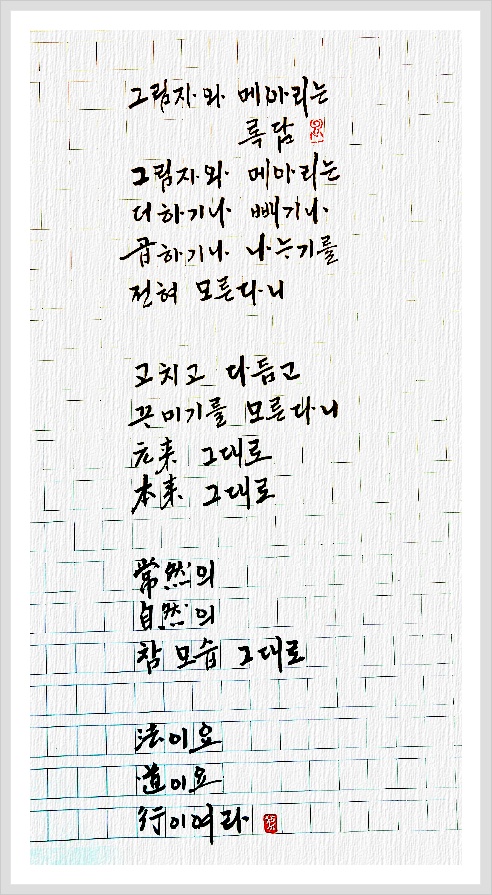 그림자와 메아리는
록담
그림자와 메아리는
더하기나 빼기나
곱하기나 나누기를
전혀 모른다니
고치고 다듬고
꾸미기를 모른다니
元来 그대로
本来 그대로
常然의
自然의
참모습 그대로
法이요
道이요
行이여라